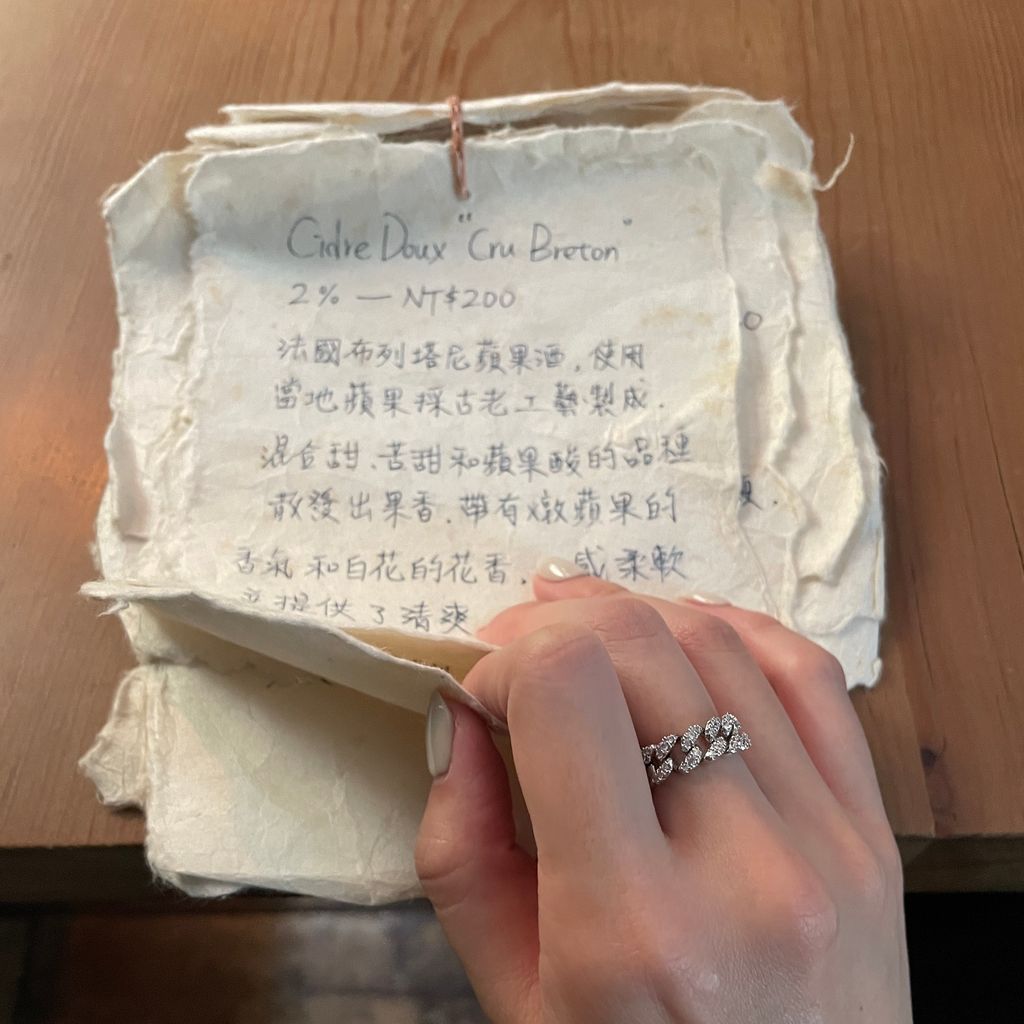 Cidre Doux "Cru Breton"
2% — NT$200
法國布列塔尼蘋果酒，使用
當地蘋果採古老工藝製成.
混合甜、苦甜和蘋果酸的品種
散發出果香，帶有燉蘋果的
香氣和白花的花香， 感柔軟
提供了清爽